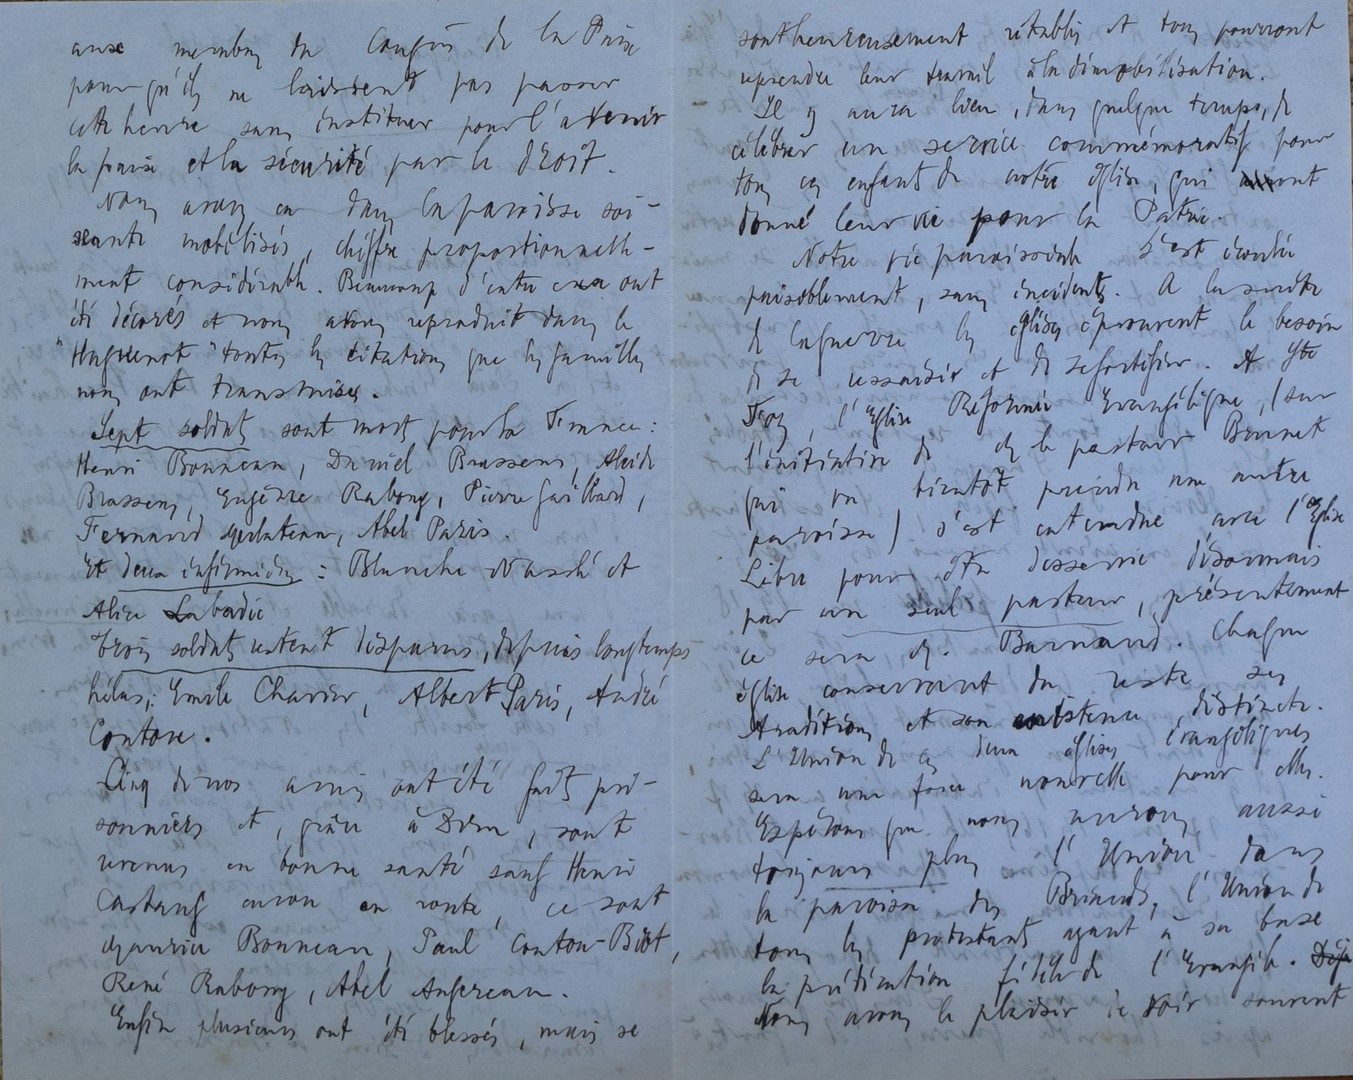 aux membres du Congrès de la Paix
pour qu'ils ne laissent pas passer
cette heure sans instituer pour l'avenir
la paix et la sécurité par le droit.
Nous avons eu dans la paroisse soi-
xante mobilisés, chiffre proportionnelle-
ment considérable. Beaucoup d'entre eux ont
été décorés et nous avons reproduit dans le
"Huguenot" toutes les citations que les familles
nous ont transmises.
Sept soldats sont morts pour la France :
Henri Bonneau, Daniel Brassens, Alcide
Brassens, Eugène Rabony, Pierre Gaillard,
Fernand, Abel Paris.
Et deux infirmières : Blanche et
Alice Labadie
Trois soldats restent disparus, depuis longtemps
hélas; Emile Charrier, Albert Paris, André
Contou.
Cinq de nos amis ont été faits pri-
sonniers et, grâce à Dieu, sont
revenus en bonne santé sauf Henri
Castang encore en route, ce sont
Maurice Bonneau, Paul Contou-Biot,
René Rabony, Abel Augereau.
Enfin plusieurs ont été blessés, mais se
sont heureusement rétablis et tous pourront
reprendre leur travail à la démobilisation.
Il y aura lieu, dans quelque temps, de
célébrer un service commémoratif pour
tous ces enfants de notre église, qui auront
donné leur vie pour la Patrie
Notre vie paroissiale s'est écoulée
paisiblement, sans incidents. A la suite
de la guerre les églises éprouvent le besoin
de se ressaisir et de se fortifier. A Ste
Foy, l'Eglise Réformée Evangélique, (sur
l'initiative de M. le pasteur Bonnet
qui va bientôt prendre une autre
paroisse) s'est entendue avec l'Eglise
Libre pour être desservie désormais
par un seul pasteur, présentement
ce sera M. Barnaud. Chaque
église conservant du reste ses
traditions et son existence distincte.
L'Union de ces deux églises évangéliques
sera une force nouvelle pour elles.
Espérons que nous aurons aussi
toujours plus l'Union dans
la paroisse des Briands, l'Union de
tous les protestants ayant à sa base
la prédication fidèle de l'Evangile. Déjà
Nous avons le plaisir de voir souvent